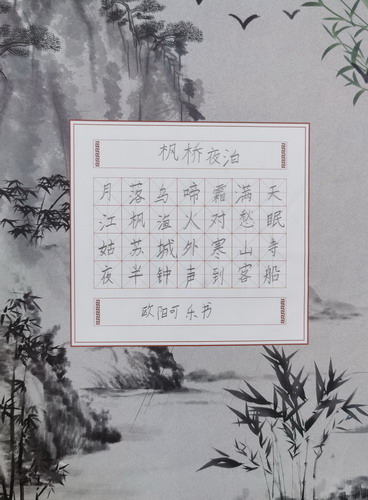 枫桥夜泊
月落乌啼霜满天
江枫渔火对愁眠
姑苏城外寒山寺
夜半钟声到客船
欧阳可乐书